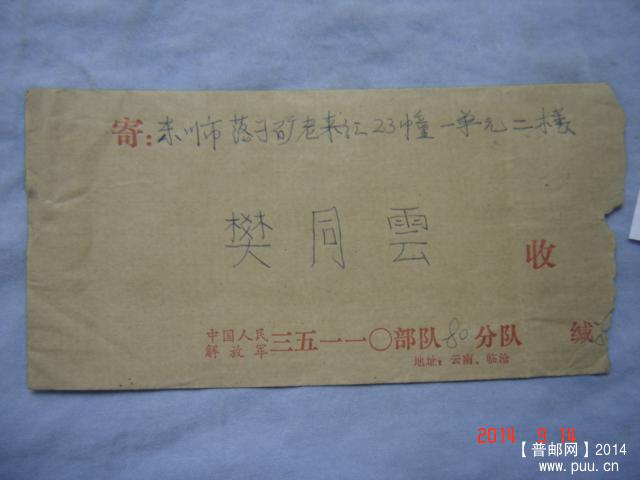 寄：东川市落于矿老来红23幢一单元二楼
樊同雲
收
中国人民
解放军三五一一〇部队80分队
缄
地址：云南、临沧
2014 9 14
【普邮网】2014
www.puu.cn